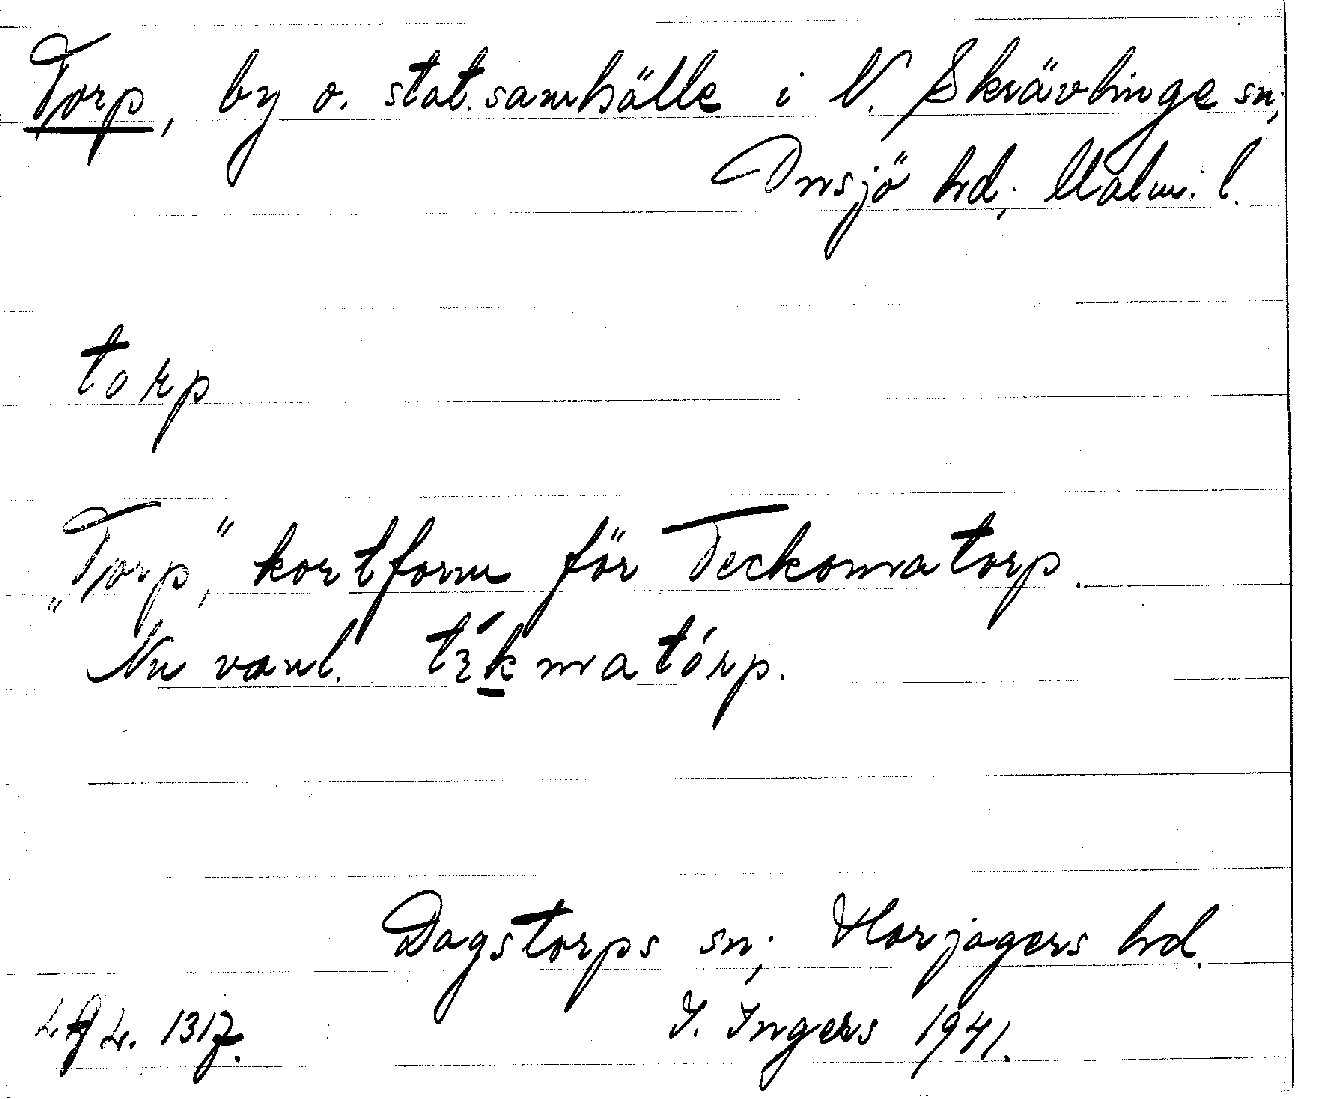 Torp, by o. stat.samhälle i N. Skrävlinge sn,
Onsjö hd; Malm. l.
torp
„Torp”, kortform för Teckomatorp.
Nu vanl. tɛ́kmatórp.
Dagstorps sn; Harjagers hd.
I. Ingers 1941.
1317.